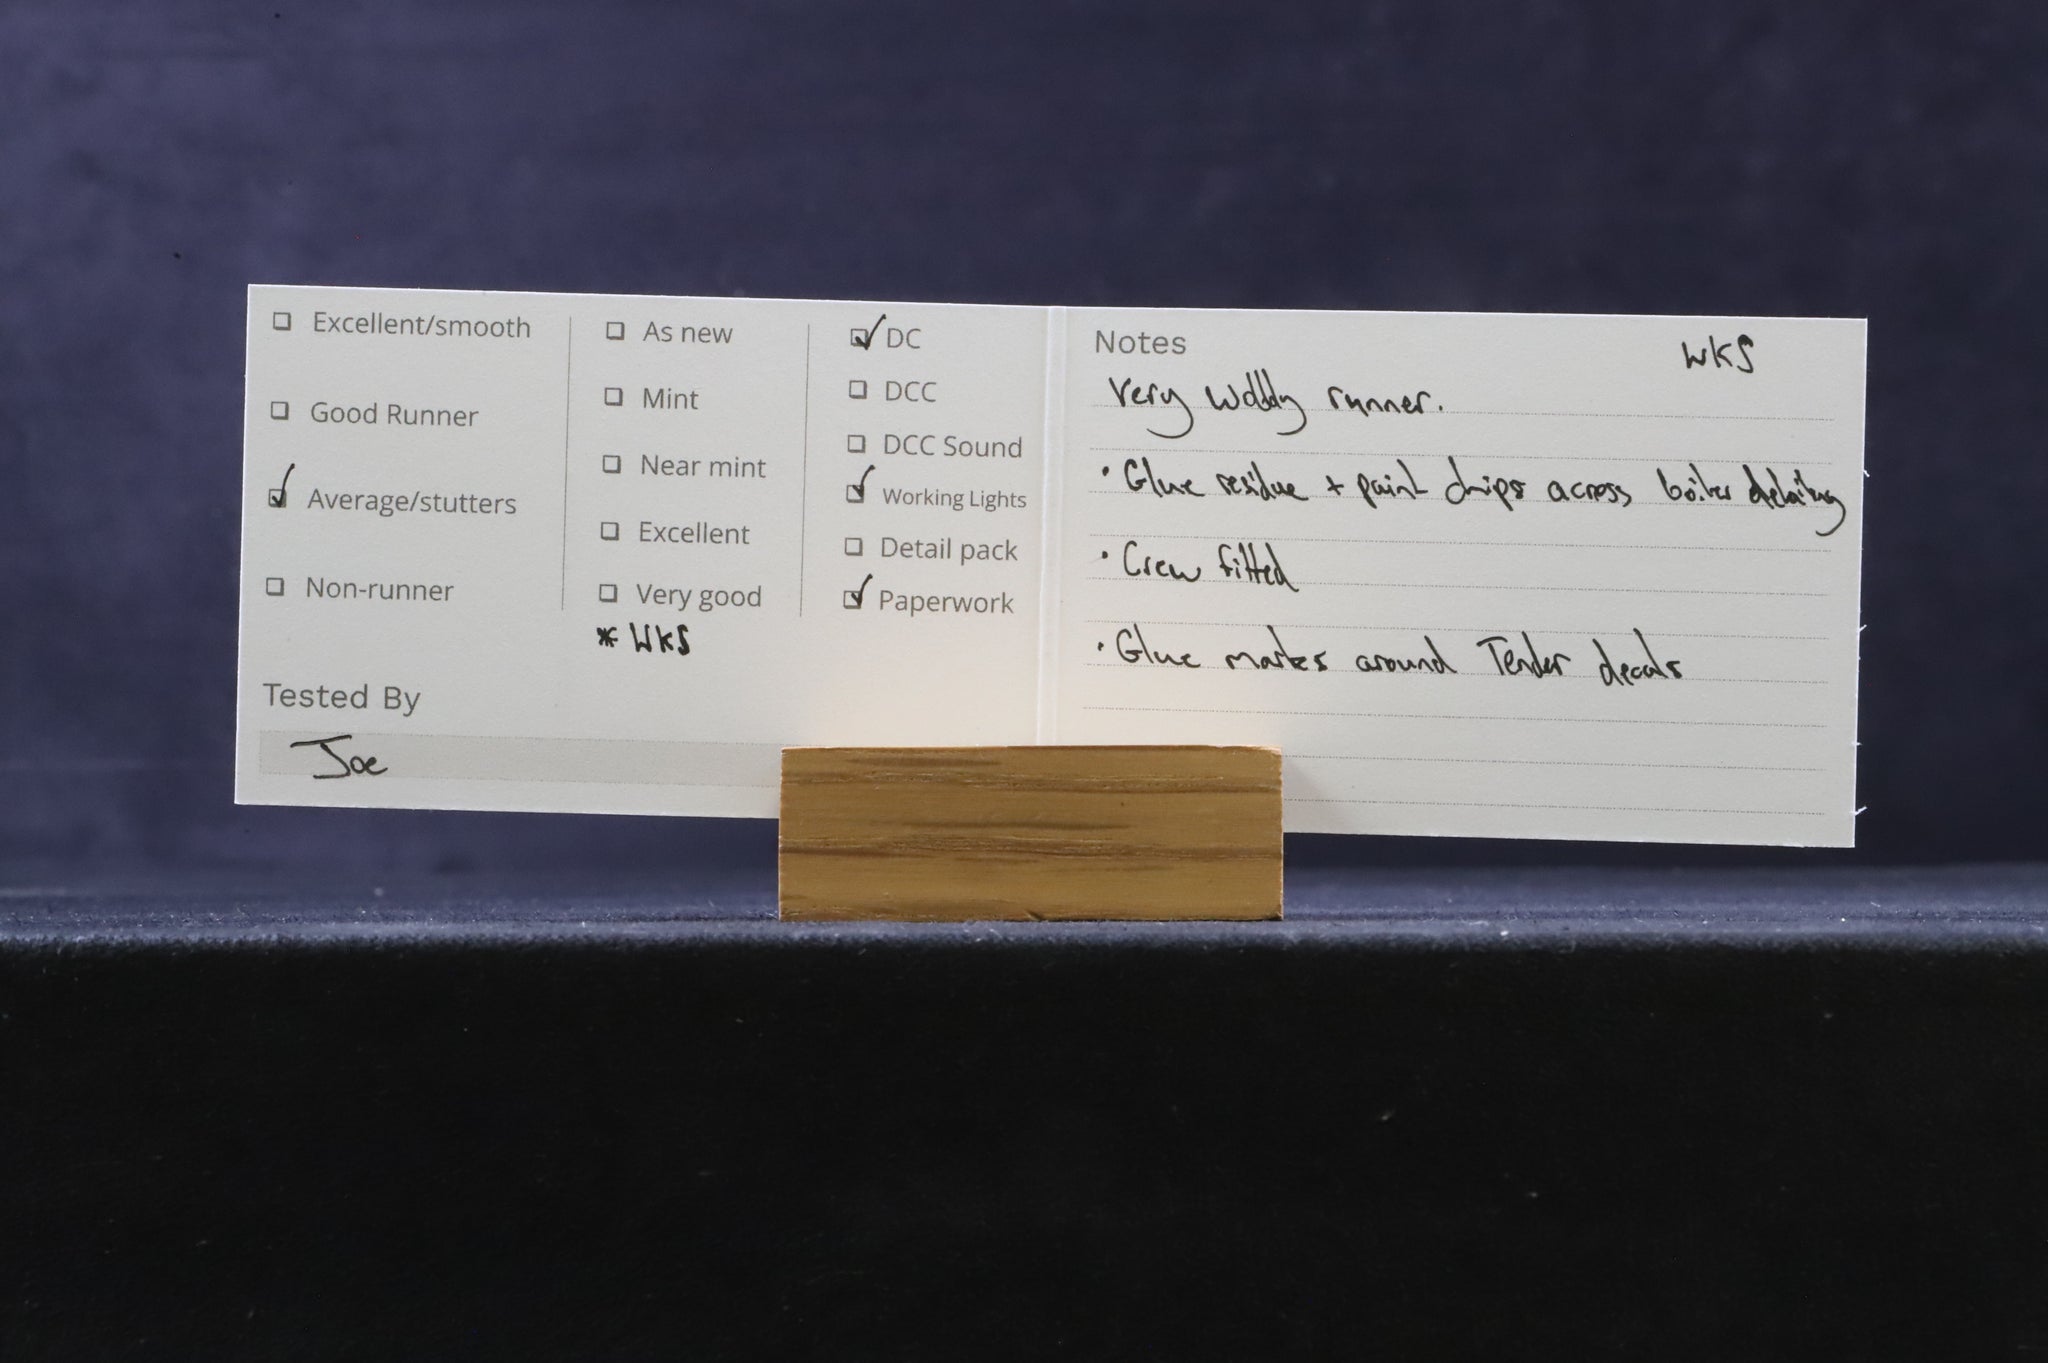 ☐ Excellent/smooth
☐ Good Runner
☑ Average/stutters
☐ Non-runner
☐ As new
☐ Mint
☐ Near mint
☐ Excellent
☐ Very good
* WKS
☑ DC
☐ DCC
☐ DCC Sound
☑ Working Lights
☐ Detail pack
☑ Paperwork
Tested By
Joe
Notes
WKS
Very wobbly runner.
• Glue residue + paint chips across boiler detailing
• Crew fitted
• Glue marks around Tender decals